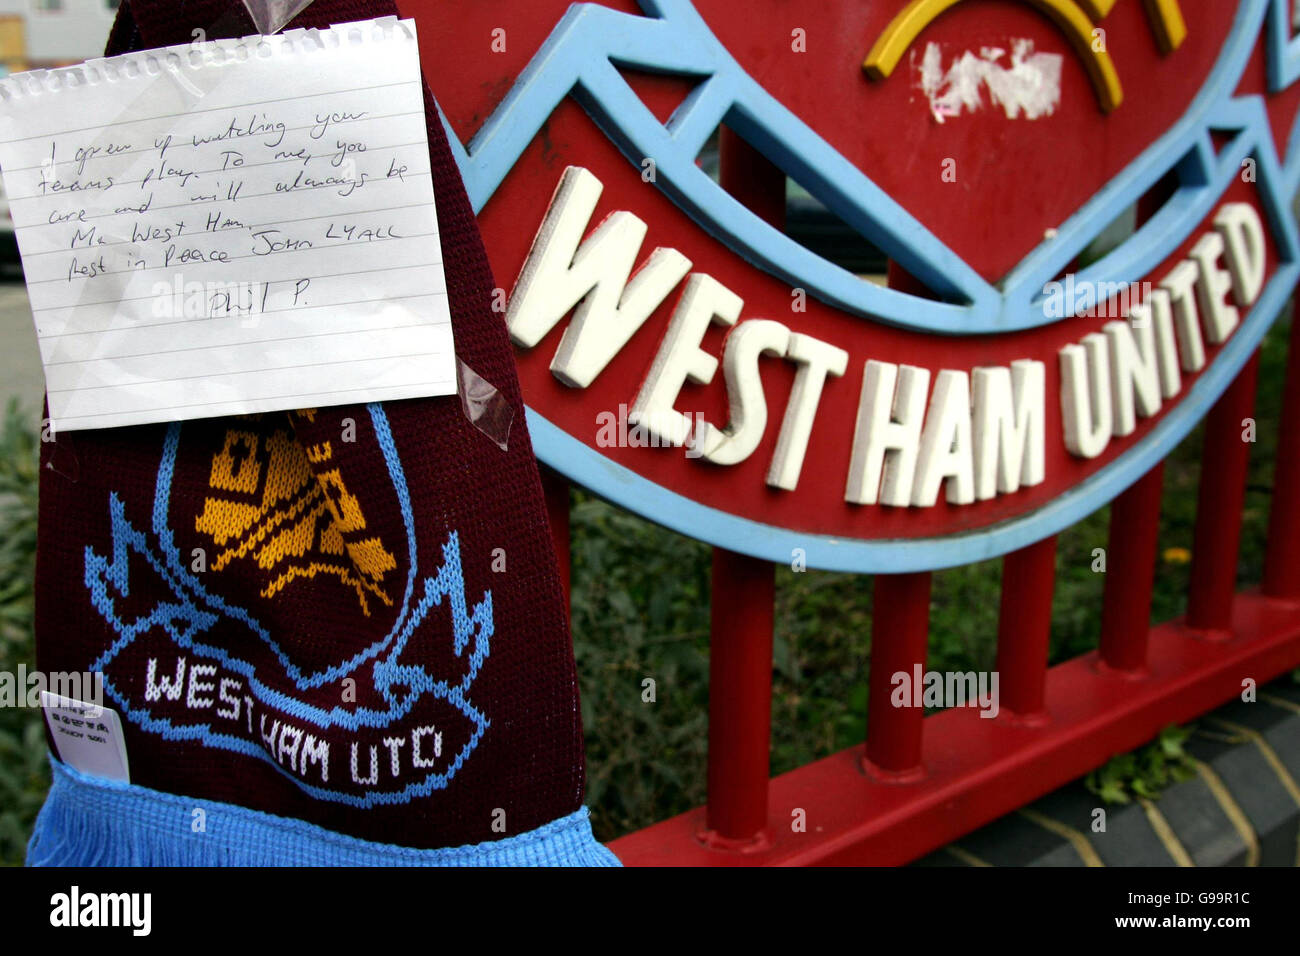 I grew up watching your
teams play. To me, you
are and will always be
Mr West Ham.
Rest in Peace JOHN LYALL
Phil P.
WEST HAM UNITED
WEST HAM UTD
100% ACRYLIC
a alamy stock photo
alamy
Image ID: G99R1C
www.alamy.com